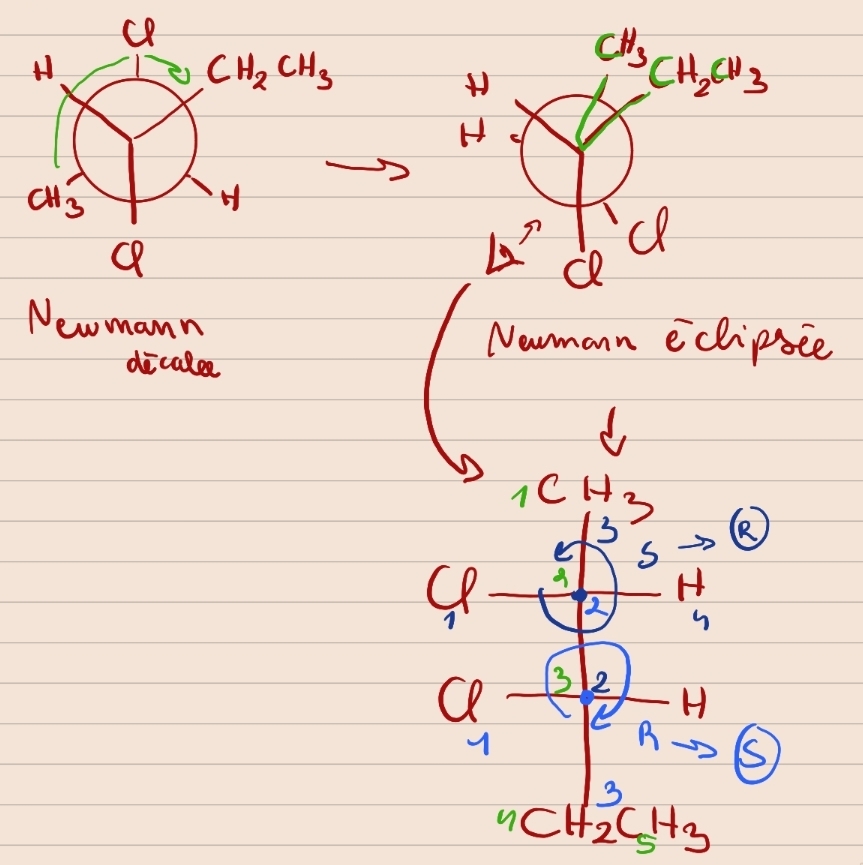 Cl
H CH2CH3
CH3 H
Cl
Newmann
décalee
CH3
H CH2CH3
H
Cl
Cl
Neumann éclipsée
1CH3
3 S → R
Cl 2 H
1 2 4
Cl 3 2 H
1 R → S
3
4CH2CH3
5